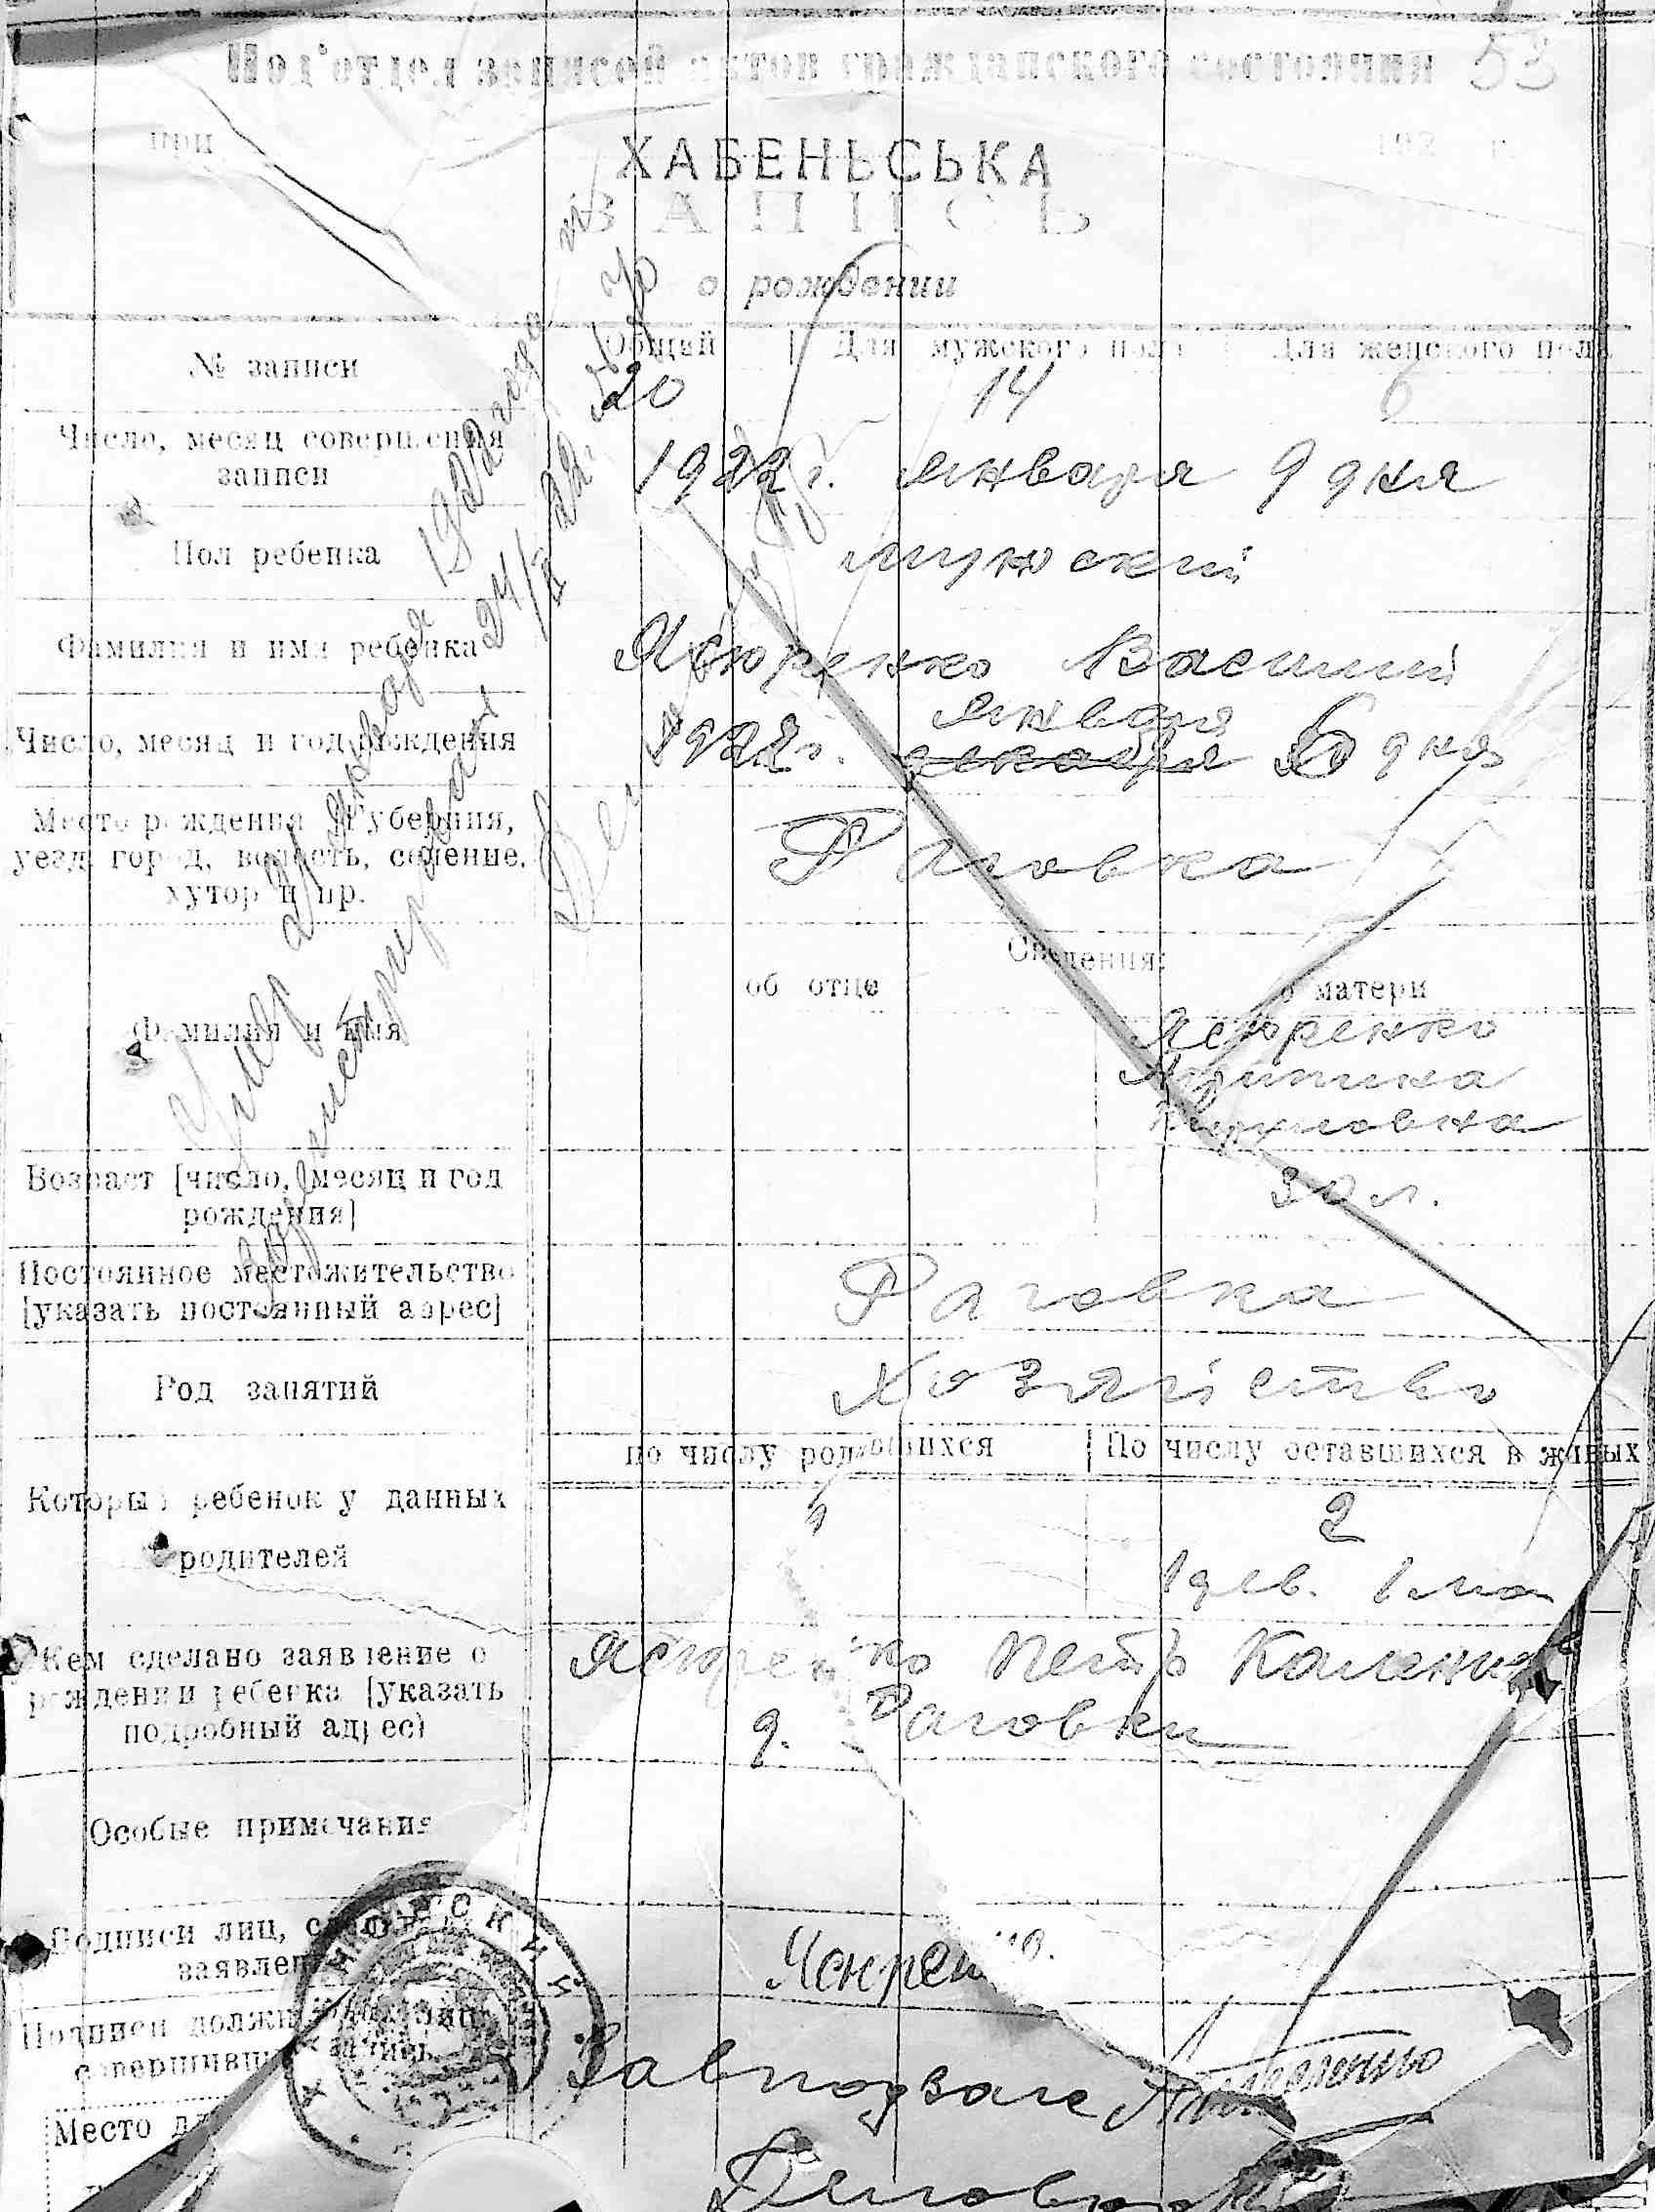 Под'отдел записей актов гражданского состояния 53
при 192 г.
ХАБЕНЬСЬКА
ЗАПИСЬ
о рождении
№ записи
Общий Для мужского пола Для женского пола
20 14 6
Число, месяц совершения записи
1922 г. января 9 дня
Пол ребенка
мужский
Фамилия и имя ребенка
Ясюренко Василий
января
Число, месяц и год рождения
1922 г. декабря 6 дня
Место рождения губерния,
уезд, город, волость, селение,
хутор и пр.
Раговка
Сведения:
об отце о матери
Фамилия и имя
Ясюренко
Возраст [число, месяц и год
рождения]
30 л.
Постоянное местожительство
[указать постоянный адрес]
Раговка
Род занятий
Хозяйство
по числу родившихся По числу оставшихся в живых
Который ребенок у данных
родителей
2
1 дев. 1
Кем сделано заявление о
рождении ребенка [указать
подробный адрес)
Ясюренко Петр
д. Раговки
Особые примечания
Подписи лиц,
Подписи
Завподзаге
Место
Умер 21 января 1922 года
зарегистрирован 24/II 22 г.